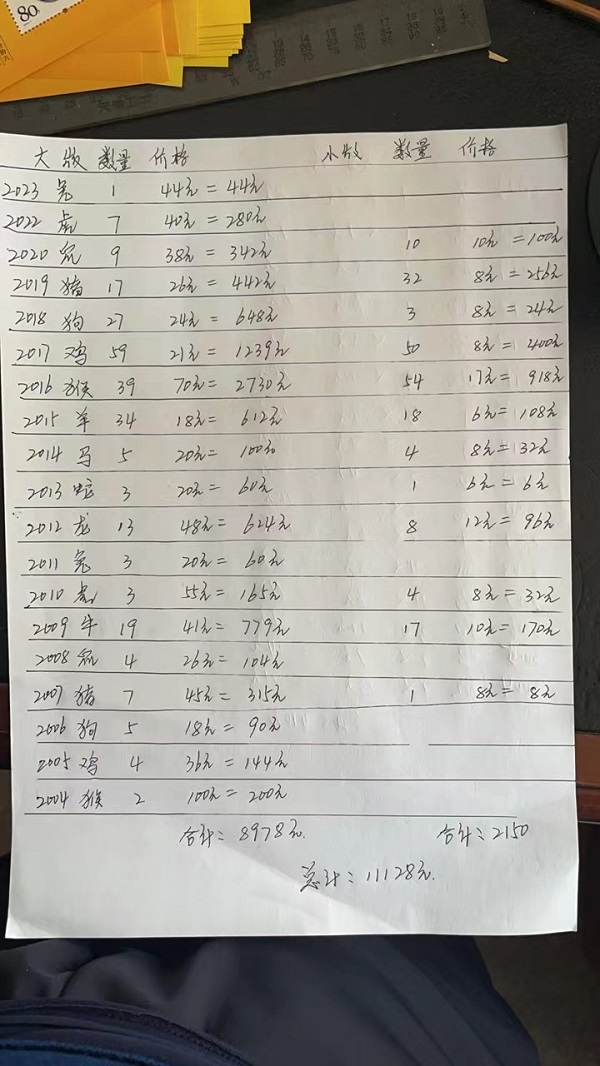 80
大版 数量 价格 小版 数量 价格
2023 兔 1 44元 = 44元
2022 虎 7 40元 = 280元
2020 鼠 9 38元 = 342元 10 10元 = 100元
2019 猪 17 26元 = 442元 32 8元 = 256元
2018 狗 27 24元 = 648元 3 8元 = 24元
2017 鸡 59 21元 = 1239元 50 8元 = 400元
2016 猴 39 70元 = 2730元 54 17元 = 918元
2015 羊 34 18元 = 612元 18 6元 = 108元
2014 马 5 20元 = 100元 4 8元 = 32元
2013 蛇 3 20元 = 60元 1 6元 = 6元
2012 龙 13 48元 = 624元 8 12元 = 96元
2011 兔 3 20元 = 60元
2010 虎 3 55元 = 165元 4 8元 = 32元
2009 牛 19 41元 = 779元 17 10元 = 170元
2008 鼠 4 26元 = 104元
2007 猪 7 45元 = 315元 1 8元 = 8元
2006 狗 5 18元 = 90元
2005 鸡 4 36元 = 144元
2004 猴 2 100元 = 200元
合计: 8978元. 合计: 2150
总计: 11128元.